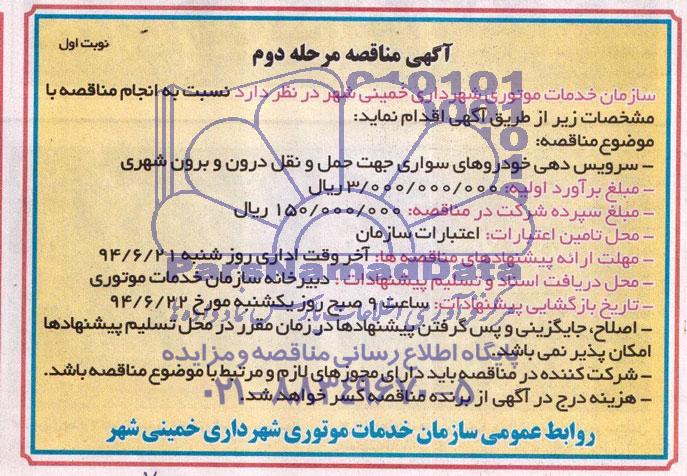 آگهی مناقصه مرحله دوم
نوبت اول
سازمان خدمات موتوری شهرداری خمینی شهر در نظر دارد نسبت به انجام مناقصه با
مشخصات زیر از طریق آگهی اقدام نماید:
موضوع مناقصه:
– سرویس دهی خودروهای سواری جهت حمل و نقل درون و برون شهری
– مبلغ برآورد اولیه: ۳/۰۰۰/۰۰۰/۰۰۰ ریال
– مبلغ سپرده شرکت در مناقصه: ۱۵۰/۰۰۰/۰۰۰ ریال
– محل تامین اعتبارات: اعتبارات سازمان
– مهلت ارائه پیشنهادهای مناقصه ها: آخر وقت اداری روز شنبه ۹۴/۶/۲۱
– محل دریافت اسناد و تسلیم پیشنهادات: دبیرخانه سازمان خدمات موتوری
– تاریخ بازگشایی پیشنهادات: ساعت ۹ صبح روز یکشنبه مورخ ۹۴/۶/۲۲
– اصلاح، جایگزینی و پس گرفتن پیشنهادها در زمان مقرر در محل تسلیم پیشنهادها
امکان پذیر نمی باشد.
– شرکت کننده در مناقصه باید دارای مجوزهای لازم و مرتبط با موضوع مناقصه باشد.
– هزینه درج در آگهی از برنده مناقصه کسر خواهد شد.
روابط عمومی سازمان خدمات موتوری شهرداری خمینی شهر
ParsNamadData
پایگاه اطلاع رسانی مناقصه و مزایده
۰۲۱-۸۸۳۴۹۶۷۰-۵